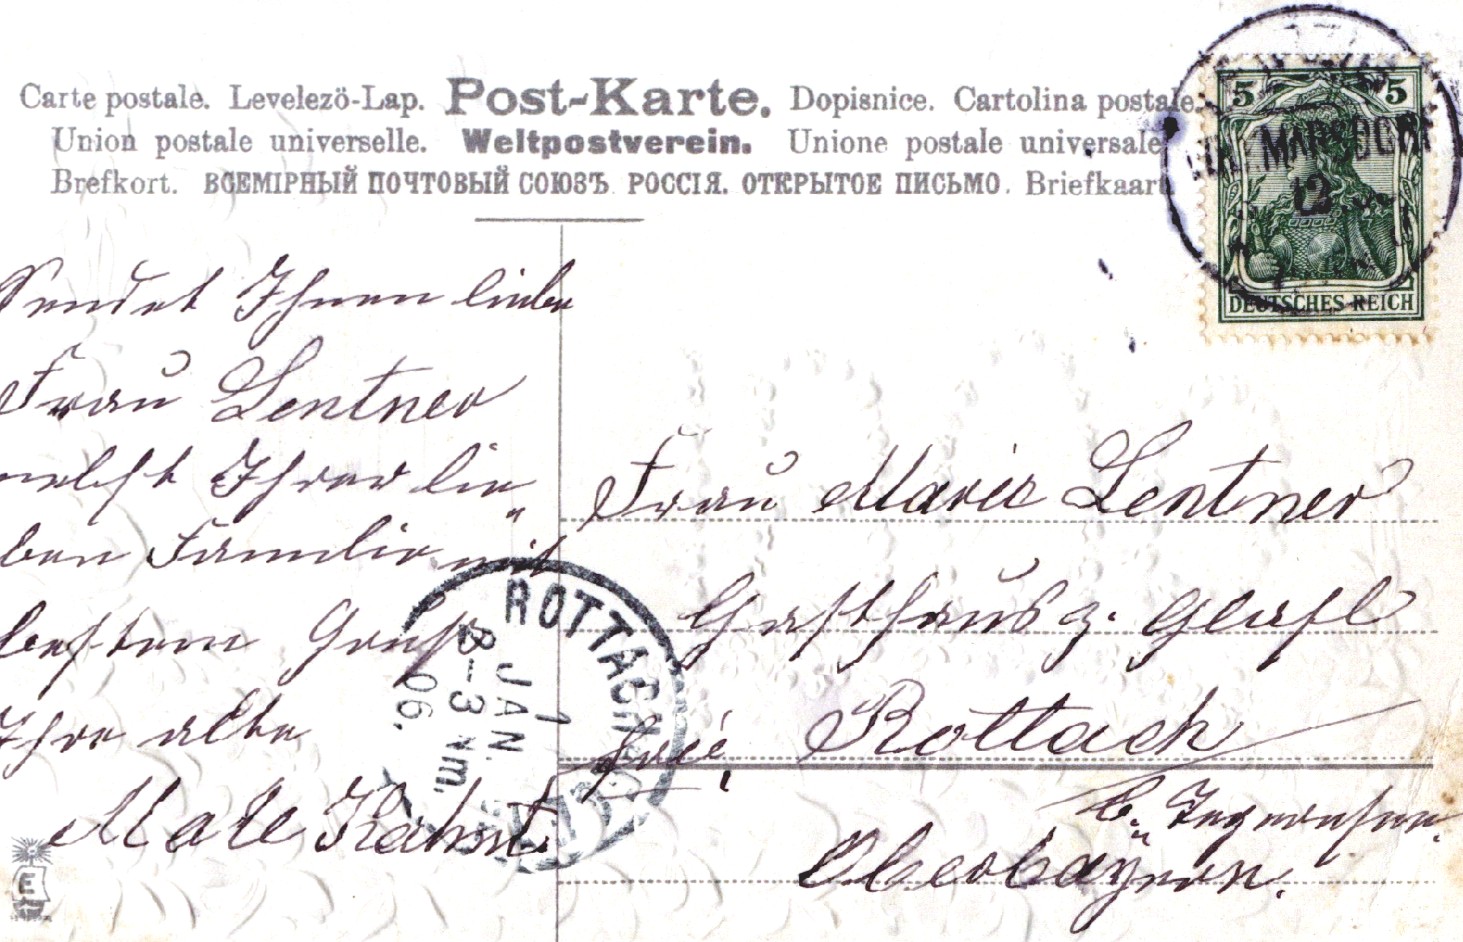 Carte postale. Levelezö-Lap. Post-Karte. Dopisnice. Cartolina postale.
Union postale universelle. Weltpostverein. Unione postale universale
Brefkort. ВСЕМІРНЫЙ ПОЧТОВЫЙ СОЮЗЪ. РОССІЯ. ОТКРЫТОЕ ПИСЬМО. Briefkaart
5 5
12
DEUTSCHES REICH
Sendet Ihnen liebe
Frau Lentner
nebst Ihrer lie„
ben Familie mit
besten Gruß
Ihre alte
Male
Frau Marie Lentner
Gasthaus z.
Rottach
b. Tegernsee.
Oberbayern.
ROTTACH
1
JAN.
8-9 Vm.
06.
E